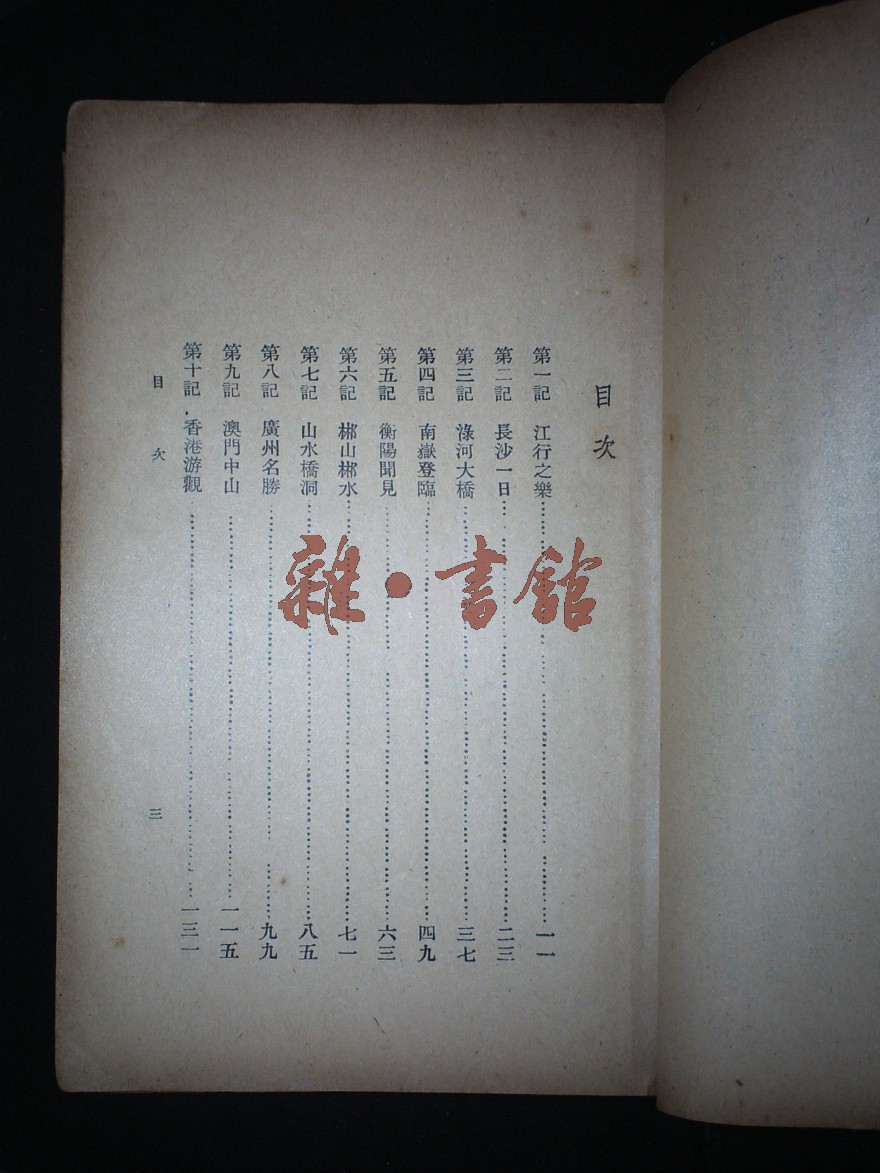 目次
第一記 江行之樂……一一
第二記 長沙一日……二三
第三記 淥河大橋……三七
第四記 南嶽登臨……四九
第五記 衡陽聞見……六三
第六記 郴山郴水……七一
第七記 山水橋洞……八五
第八記 廣州名勝……九九
第九記 澳門中山……一一五
第十記 香港游觀……一三一
目次
三
雜·書館